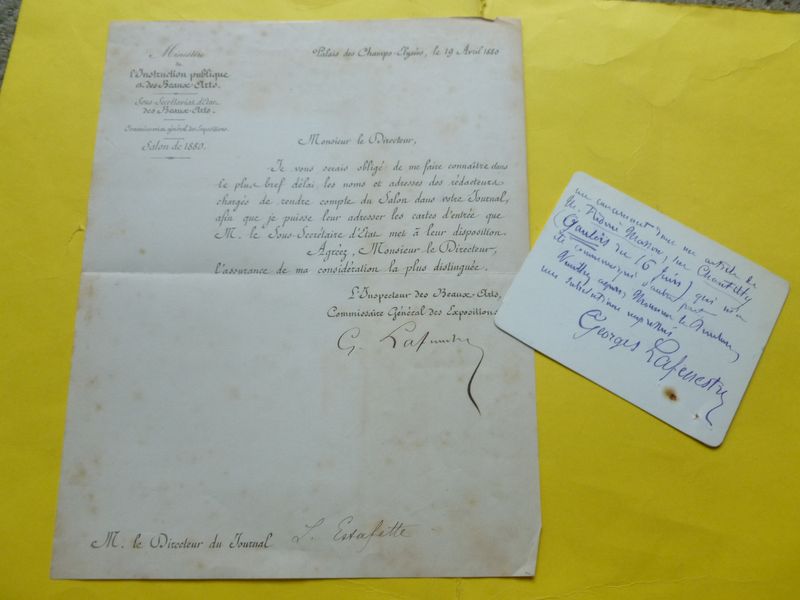 Ministère
de
l'Instruction publique
et des Beaux-Arts.
Sous-Secrétariat d'État
des Beaux-Arts.
Commissariat général des Expositions.
Salon de 1880.
Palais des Champs-Élysées, le 19 Avril 1880
Monsieur le Directeur,
Je vous serais obligé de me faire connaître dans
le plus bref délai, les noms et adresses des rédacteurs
chargés de rendre compte du Salon dans votre Journal,
afin que je puisse leur adresser les cartes d'entrée que
M. le Sous-Secrétaire d'État met à leur disposition.
Agréez, Monsieur le Directeur,
l'assurance de ma considération la plus distinguée.
L'Inspecteur des Beaux-Arts,
Commissaire Général des Expositions
G. Lafenestre
M. le Directeur du Journal L'Estafette
me concernant dans un article de
M. Frédéric Masson, sur Chantilly
(Gaulois du 16 Juin) qui m'a
été communiqué d'autre part
Veuillez agréer, Monsieur le Directeur,
mes salutations
Georges Lafenestre